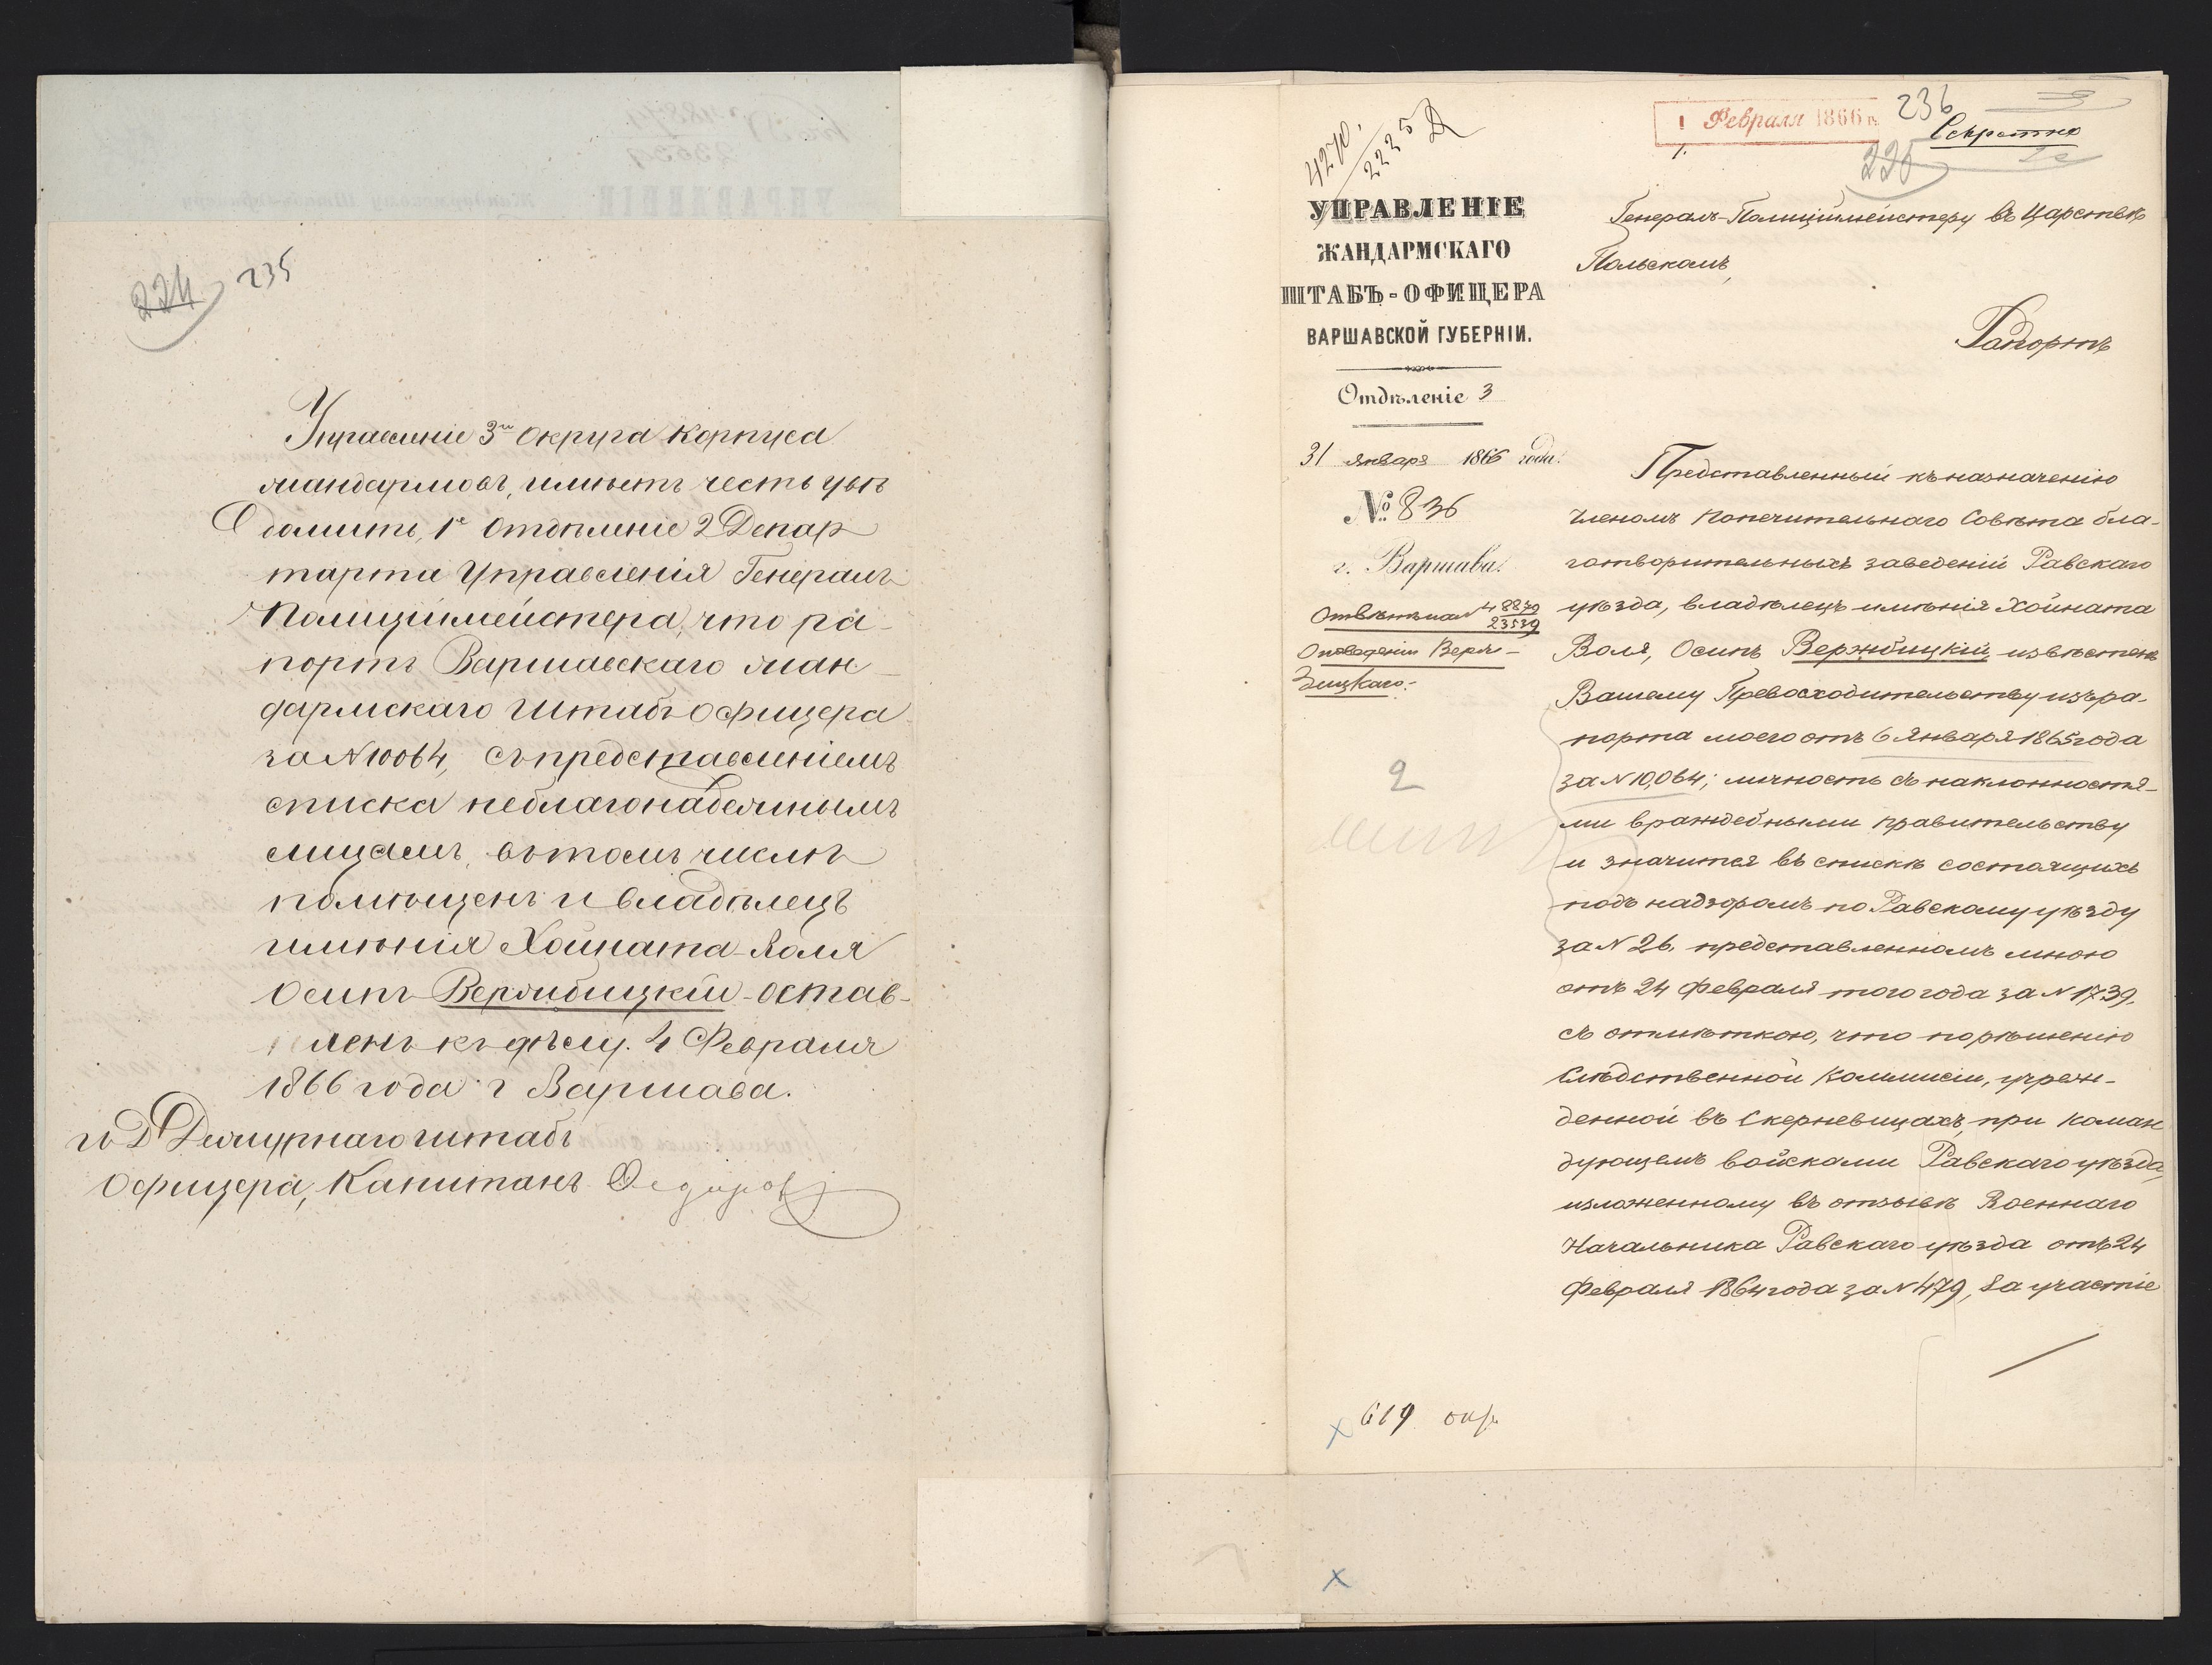 224 235
Управленіе 3го Округа Корпуса
жандармовъ, имѣетъ честь увѣ
домить, 1е Отдѣленіе 2 Депар
тарта Управленія Генералъ
Полиціймейстера, что ра-
портъ Варшавскаго жан
дармскаго Штабъ-Офицера
за № 10064, съ представленіемъ
списка неблагонадежнымъ
лицамъ, въ томъ числѣ
помѣщенъ и владѣлецъ
имѣнія Хойната-Воля
Осипъ Вержбицкій - остав-
ленъ къ дѣлу. 4 Февраля
1866 года г Варшава.
и Д Дежурнаго штабъ
Офицера, Капитанъ Федоров
4270.
2225
1 Февраля 1866 г.
236
Секретно
225
УПРАВЛЕНІЕ
ЖАНДАРМСКАГО
ШТАБЪ-ОФИЦЕРА
ВАРШАВСКОЙ ГУБЕРНІИ.
Отдѣленіе 3
31 января 1866 года.
№ 836
г. Варшава.
Отвѣтъ на № 48879
23539
О поведеніи Верж-
бицкаго.
2
Генералъ-Полиціймейстеру въ Царствѣ
Польскомъ,
Рапортъ
Представленный къ назначенію
членомъ Попечительнаго Совѣта бла-
готворительныхъ заведеній Равскаго
уѣзда, владѣлецъ имѣнія Хойната
Воля, Осипъ Вержбицкій извѣстенъ
Вашему Превосходительству изъ ра-
порта моего отъ 6 Января 1865 года
за № 10,064; личность съ наклонностя-
ми враждебными правительству
и значится въ спискѣ состоящихъ
подъ надзоромъ по Равскому уѣзду
за № 26. представленномъ мною
отъ 24 Февраля того года за № 1739.
съ отмѣткою, что по рѣшенію
Слѣдственной Коммисіи, учреж-
денной въ Скерневицахъ, при коман
дующемъ войсками Равскаго уѣзда,
изложенному въ отзывѣ Военнаго
Начальника Равскаго уѣзда отъ 24
Февраля 1864 года за № 479, за участіе
619